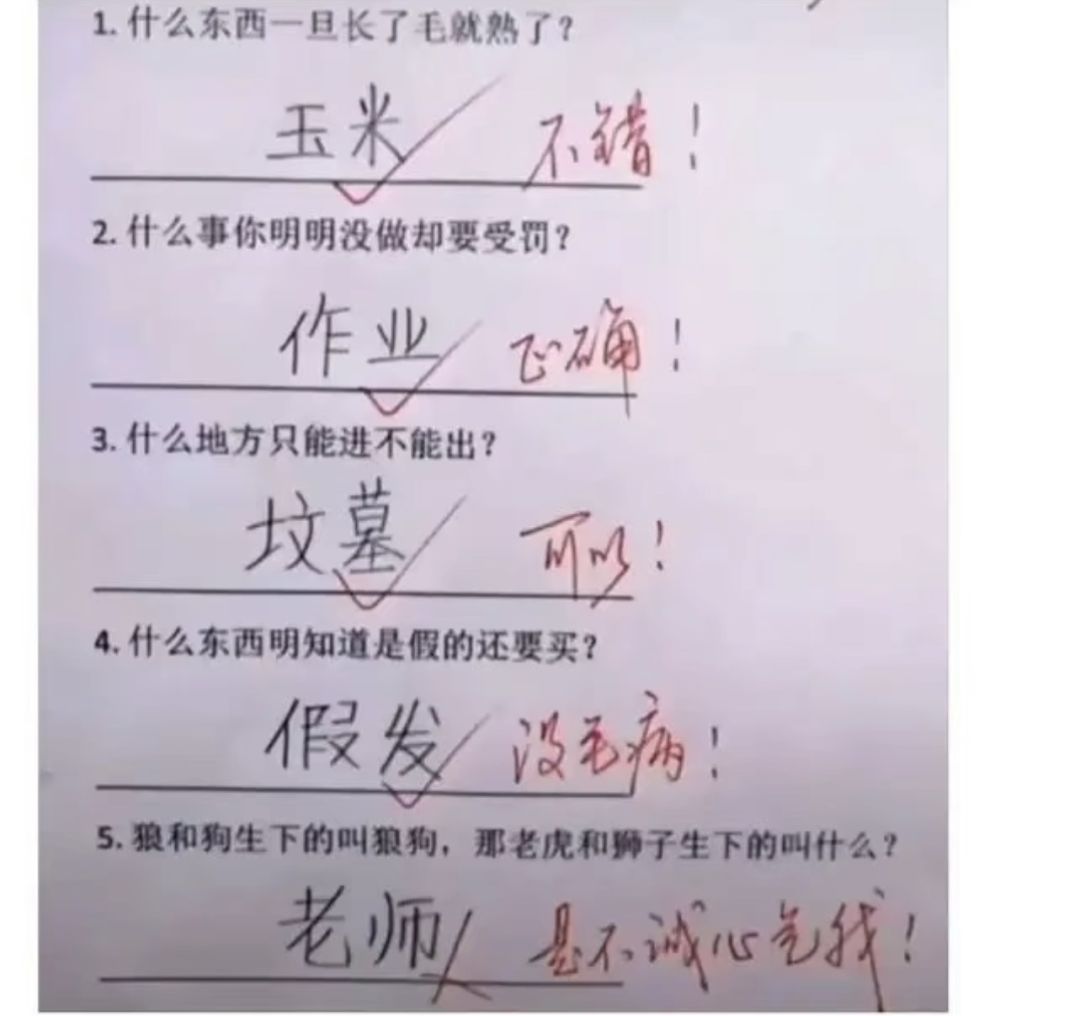 1. 什么东西一旦长了毛就熟了？
玉米 不错！
2. 什么事你明明没做却要受罚？
作业 正确！
3. 什么地方只能进不能出？
坟墓 可以！
4. 什么东西明知道是假的还要买？
假发 没毛病！
5. 狼和狗生下的叫狼狗，那老虎和狮子生下的叫什么？
老师 是不诚心气我！